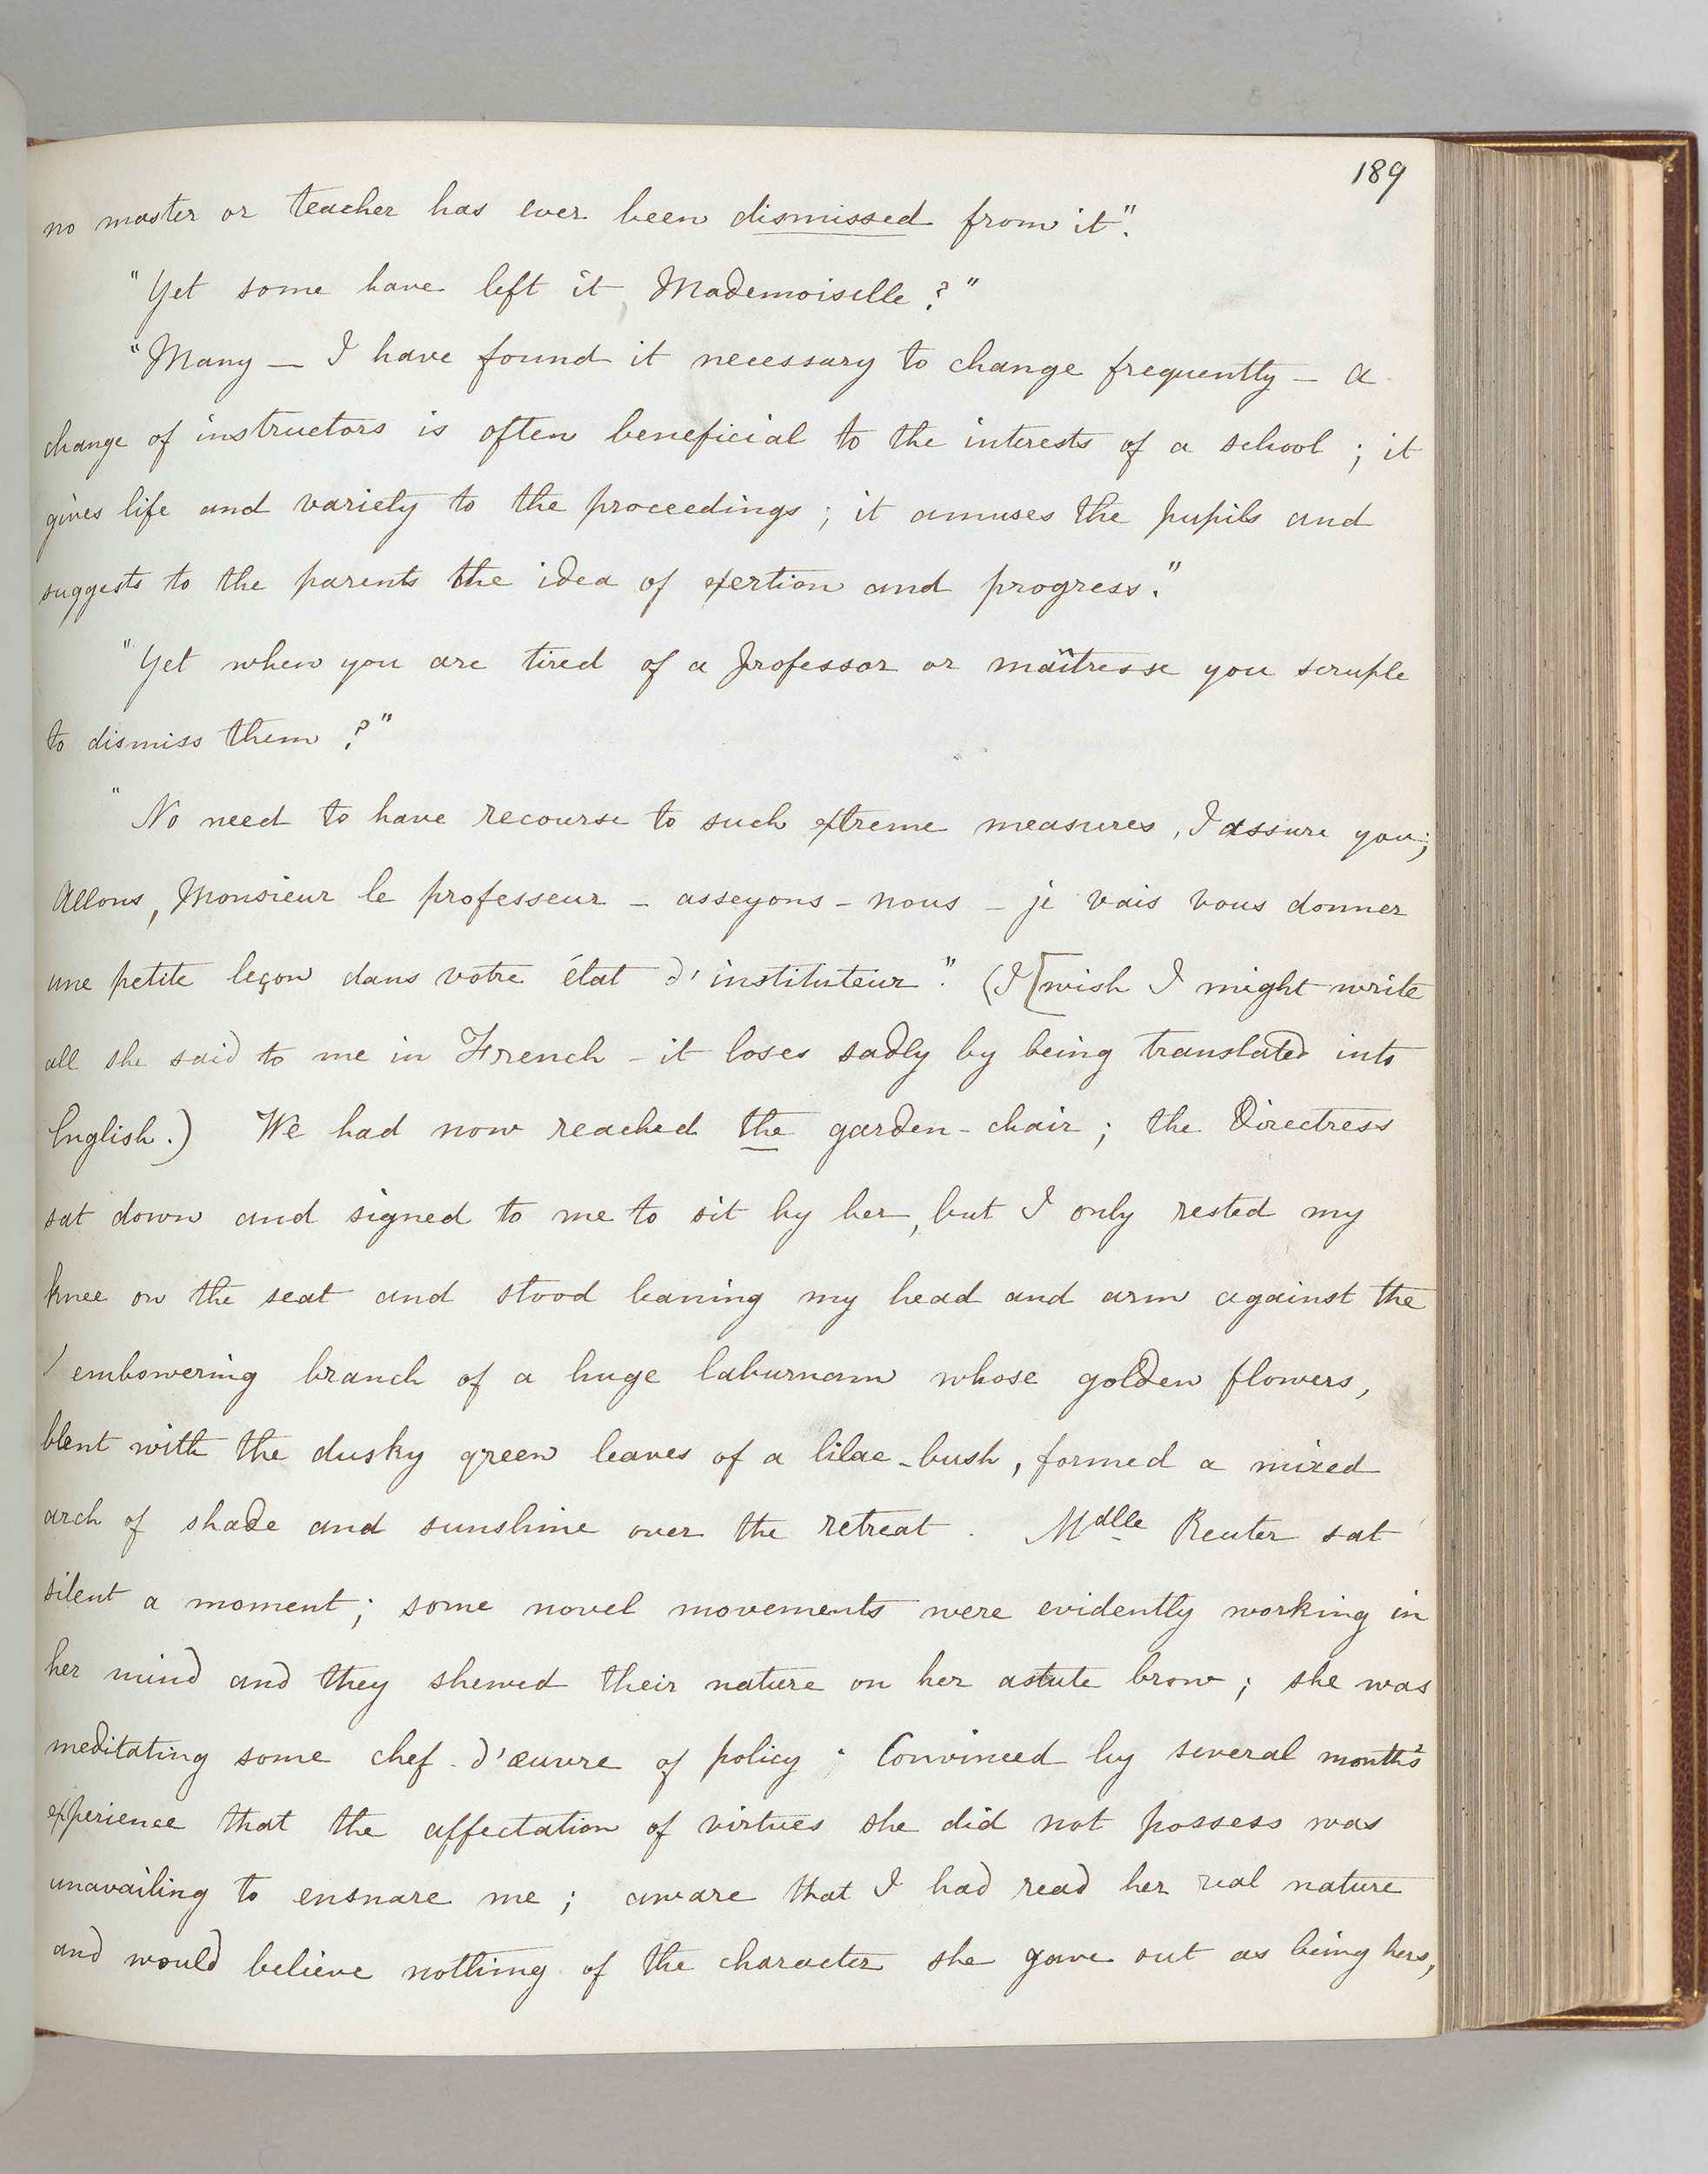 189
no master or teacher has ever been dismissed from it".
"Yet some have left it, Mademoiselle?"
"Many — I have found it necessary to change frequently — a
change of instructors is often beneficial to the interests of a school ; it
gives life and variety to the proceedings ; it amuses the pupils and
suggests to the parents the idea of exertion and progress."
"Yet when you are tired of a professor or maîtresse you scruple
to dismiss them ?"
"No need to have recourse to such extreme measures, I assure you;
Allons, Monsieur le professeur – asseyons-nous – je vais vous donner
une petite leçon dans votre état d'instituteur". (I [wish I might write
all she said to me in French – it loses sadly by being translated into
English.) We had now reached the garden-chair ; the Directress
sat down and signed to me to sit by her, but I only rested my
knee on the seat and stood leaning my head and arm against the
embowering branch of a huge laburnam whose golden flowers,
blent with the dusky green leaves of a lilac-bush, formed a mixed
arch of shade and sunshine over the retreat. Mdlle Reuter sat
silent a moment ; some novel movements were evidently working in
her mind and they shewed their nature on her astute brow ; she was
meditating some chef d'œuvre of policy. Convinced by several month's
experience that the affectation of virtues she did not possess was
unavailing to ensnare me ; aware that I had read her real nature
and would believe nothing of the character she gave out as being hers,